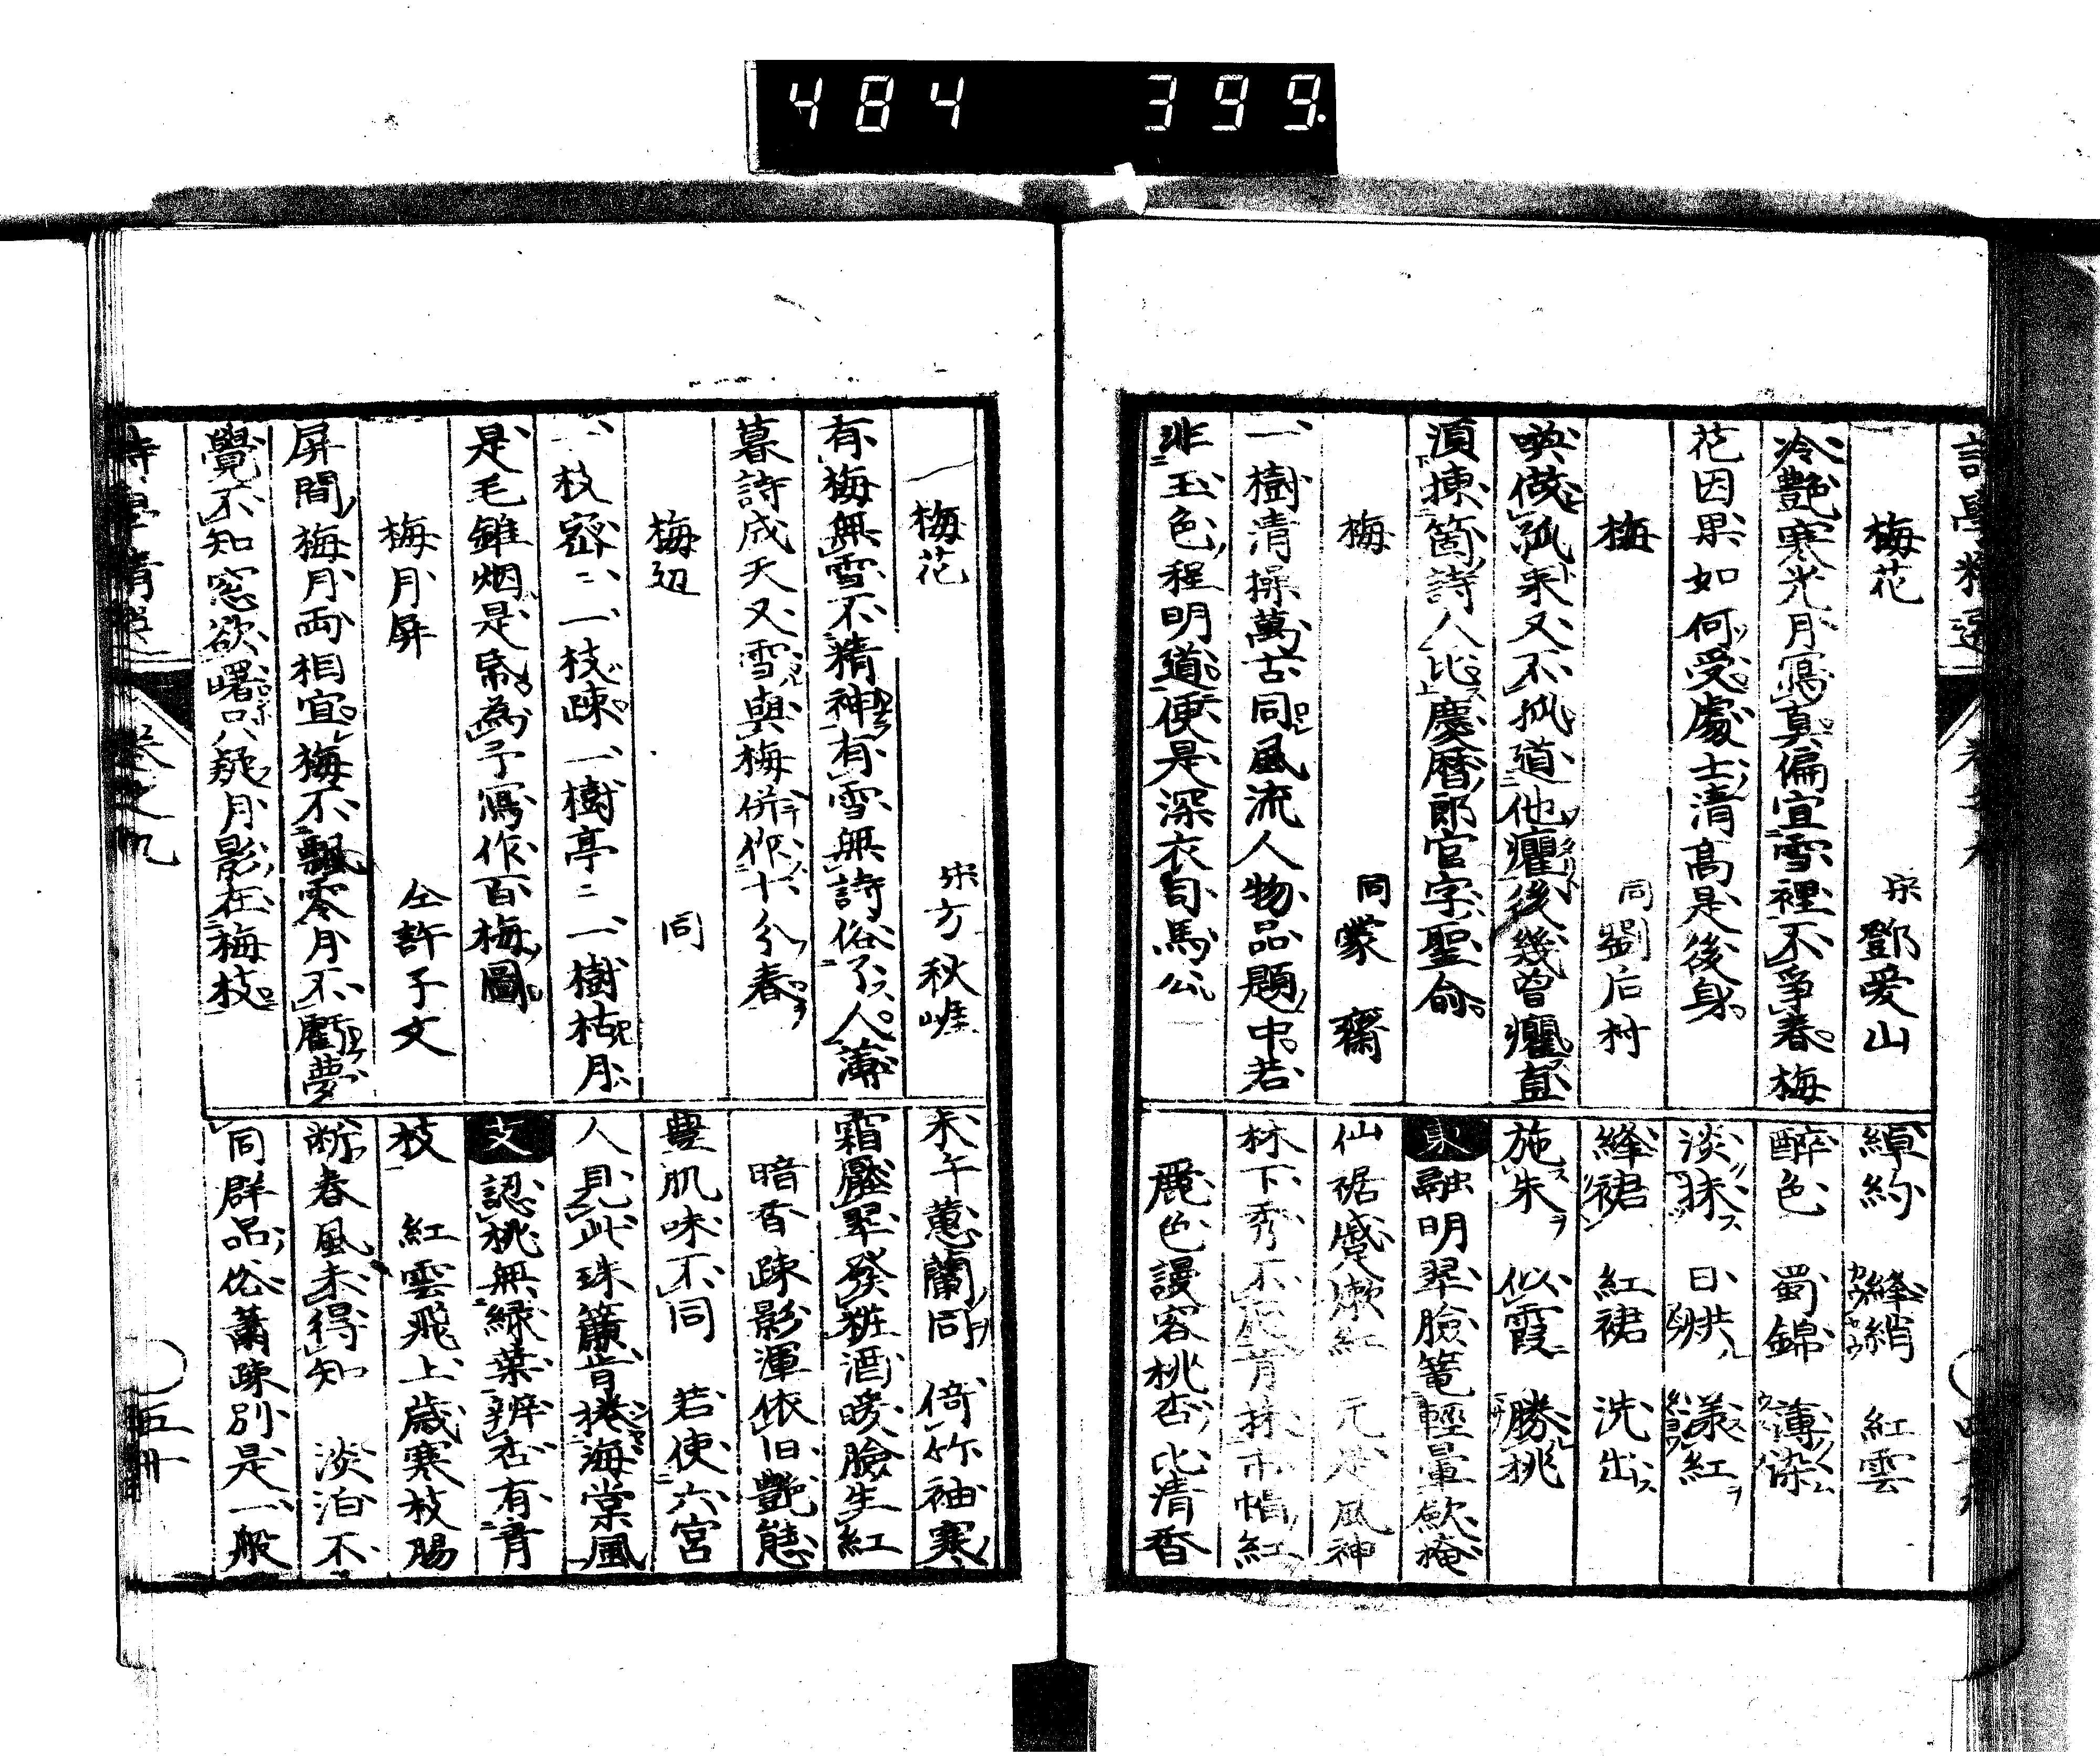 484 399.
梅花 宋 鄧愛山
冷艷寒光月寫真偏宜雪裡不爭春梅
花因果如何受處士清高是後身
梅 同 劉后村
喚做孤来又不孤道他癯後幾曾癯直
須揀箇詩人比慶暦郎官字聖俞
梅 同 蒙齋
一樹清操萬古同風流人物品題中若
非玉色程明道便是深衣司馬公
綽約 絳綃 紅雲
醉色 蜀錦 薄染
淡抹 日烘 漾紅
絳裙 紅裙 洗出
施朱 似霞 勝桃
融明翠臉篭輕暈歛掩
仙裾蹙嫩紅 元是風神
林下秀不 紅
麗色謾容桃杏比清香
梅花 宋 方秋崖
有梅無雪不精神有雪無詩俗了人薄
暮詩成天又雪與梅併作十分春
梅辺 同
一枝密二一枝疎一樹亭二一樹枯月
是毛錐烟是帋為予寫作百梅圖
梅月屏 仝 許子文
屏間梅月両相宜梅不飄零月不虧夢
覺不知窓欲曙只疑月影在梅枝
未午蕙蘭同 倚竹袖寒
霜壓翠發粧酒暖臉生紅
暗香疎影渾依旧艷態
豊肌味不同 若使六宮
人見此珠簾肯捲海棠風
支 認桃無緑葉辨杏有青
枝 紅雲飛上歳寒枝腸
断春風未得知 淡泊不
同群品俗蕭疎別是一般
詩學精選 卷之九 五卅